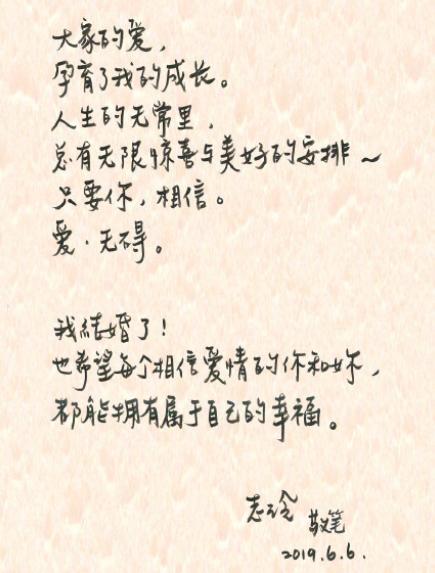 大家的爱，
孕育了我的成长。
人生的无常里，
总有无限惊喜与美好的安排～
只要你，相信。
爱·无碍。
我结婚了！
也希望每个相信爱情的你和妳，
都能拥有属于自己的幸福。
志玲 敬笔
2019.6.6.